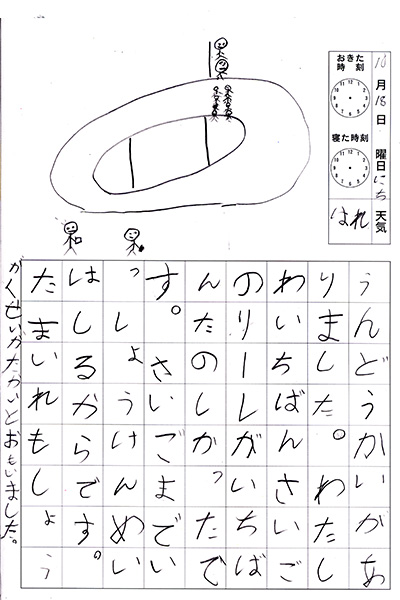 10月18日 曜日にち 天気
おきた
時刻
寝た時刻
はれ
うんどうかいがあ
りました。わたし
わいちばんさいご
のりーレがいちば
んたのしかったで
す。さいごまでい
っしょうけんめい
はしるからです。
たまいれもしょう
がくせいがたかいとおもいました。